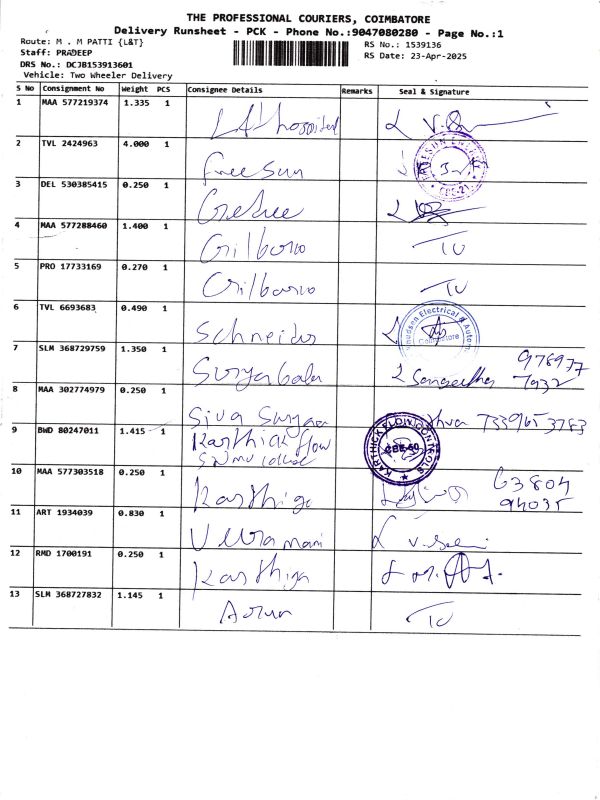 THE PROFESSIONAL COURIERS, COIMBATORE
Delivery Runsheet - PCK - Phone No.:9047080280 - Page No.:1
Route: M . M PATTI {L&T}
RS No.: 1539136
Staff: PRADEEP
RS Date: 23-Apr-2025
DRS No.: DCJB153913601
Vehicle: Two Wheeler Delivery
S No Consignment No Weight PCS Consignee Details Remarks Seal & Signature
1 MAA 577219374 1.335 1 hospital
2 TVL 2424963 4.000 1 Free Sun
3 DEL 530385415 0.250 1
4 MAA 577288460 1.400 1 Gilbarco
5 PRO 17733169 0.270 1 Gilbarco
6 TVL 6693683 0.490 1 Schneider
7 SLM 368729759 1.350 1 Suryabala Sangeetha 978977 7932
8 MAA 302774979 0.250 1 Siva Surya 7339653783
9 BWD 80247011 1.415 1 Karthick flow KARTHICK FLOW CONTROLS
10 MAA 577303518 0.250 1 Karthiga 63804 94035
11 ART 1934039 0.830 1
12 RMD 1700191 0.250 1 Karthiga
13 SLM 368727832 1.145 1 Arun